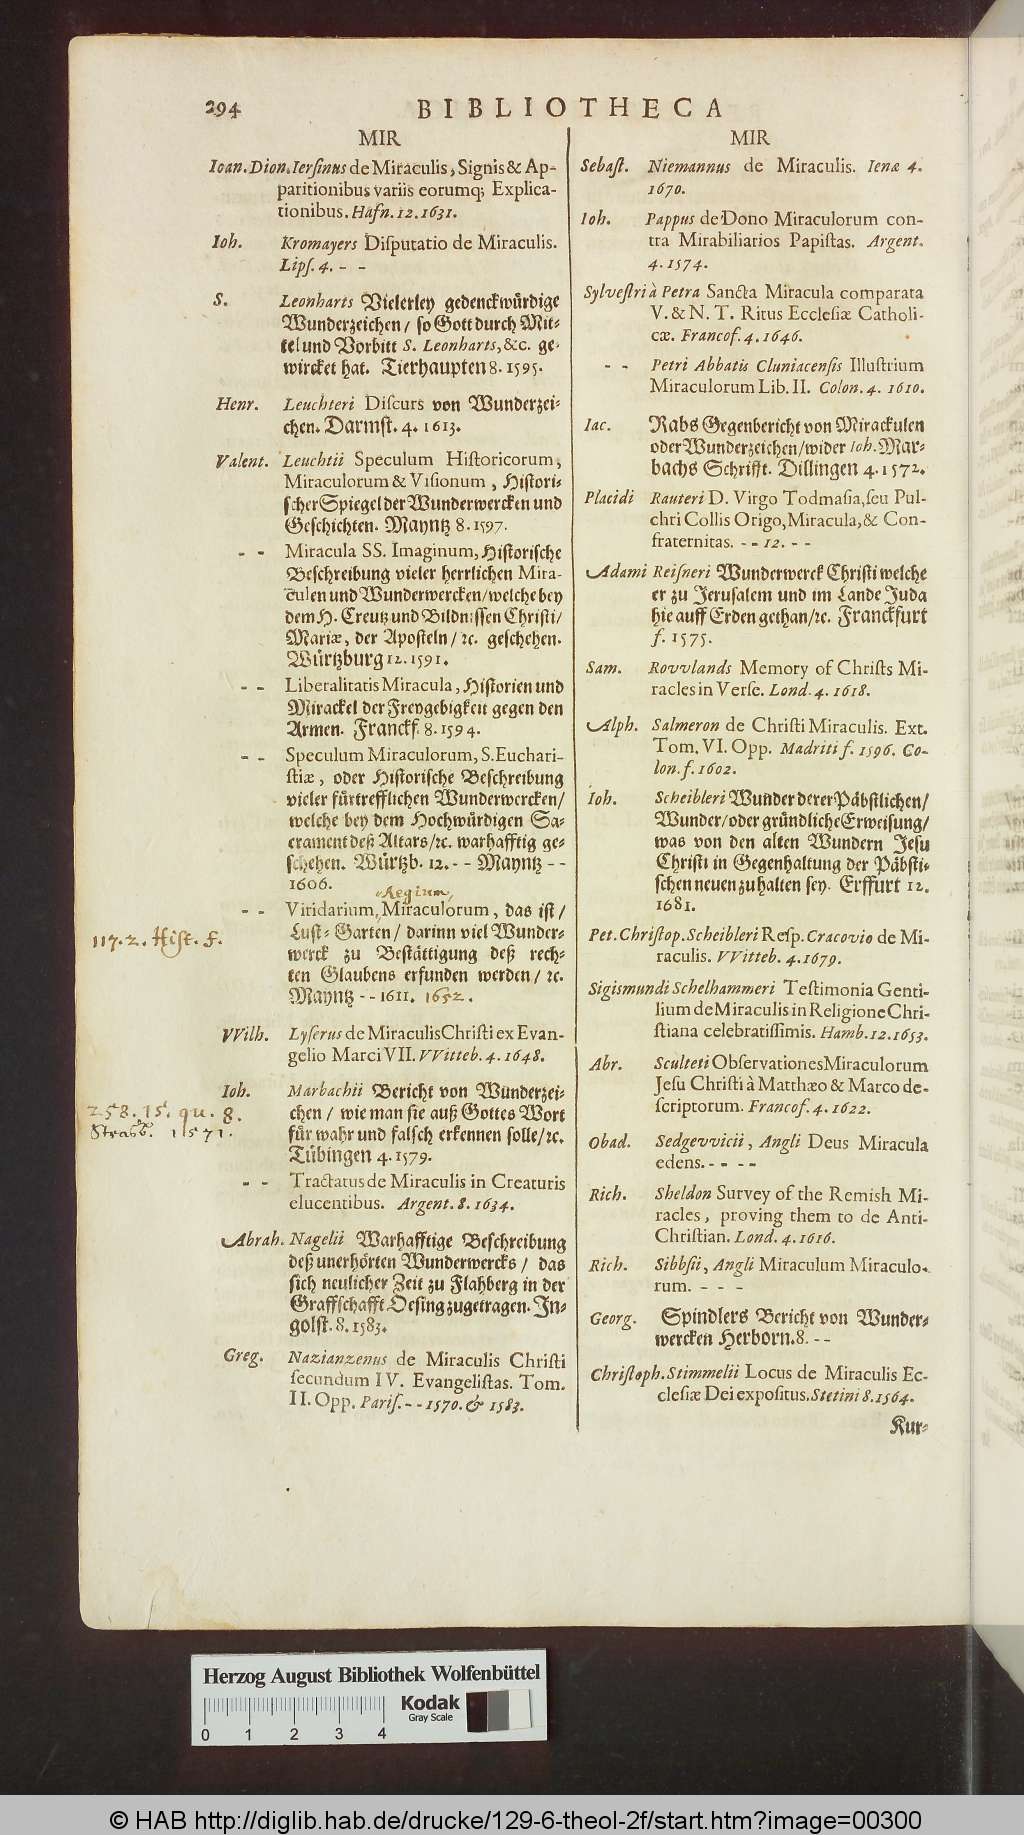 294 BIBLIOTHECA
MIR
Ioan. Dion. Iersinus de Miraculis, Signis & Ap-
paritionibus variis eorumq; Explica-
tionibus. Hafn. 12. 1631.
Ioh. Kromayers Disputatio de Miraculis.
Lips. 4. - -
S. Leonharts Vielerley gedenckwürdige
Wunderzeichen / so Gott durch Mit-
tel und Vorbitt S. Leonharts, &c. ge-
wircket hat. Tierhaupten 8. 1595.
Henr. Leuchteri Discurs von Wunderzei-
chen. Darmst. 4. 1613.
Valent. Leuchtii Speculum Historicorum,
Miraculorum & Visionum, Histori-
scher Spiegel der Wunderwercken und
Geschichten. Mayntz 8. 1597.
- - Miracula SS. Imaginum, Historische
Beschreibung vieler herrlichen Mira-
culen und Wunderwercken / welche bey
dem H. Creutz und Bildnissen Christi /
Mariæ, der Aposteln / ꝛc. geschehen.
Würtzburg 12. 1591.
- - Liberalitatis Miracula, Historien und
Mirackel der Freygebigkeit gegen den
Armen. Franckf. 8. 1594.
- - Speculum Miraculorum, S. Euchari-
stiæ, oder Historische Beschreibung
vieler fürtrefflichen Wunderwercken /
welche bey dem Hochwürdigen Sa-
crament deß Altars / ꝛc. warhafftig ge-
schehen. Würtzb. 12. - - Mayntz - -
1606.
Regium
- - Viridarium, Miraculorum, das ist /
Lust-Garten / darinn viel Wunder-
117. 2. Hist. f.
werck zu Bestättigung deß rech-
ten Glaubens erfunden werden / ꝛc.
Mayntz - - 1611. 1652.
VVilh. Lyserus de Miraculis Christi ex Evan-
gelio Marci VII. VVitteb. 4. 1648.
Ioh. Marbachii Bericht von Wunderzei-
chen / wie man sie auß Gottes Wort
258. 15. qu. 8.
für wahr und falsch erkennen solle / ꝛc.
Strasb. 1571.
Tübingen 4. 1579.
- - Tractatus de Miraculis in Creaturis
elucentibus. Argent. 8. 1634.
Abrah. Nagelii Warhafftige Beschreibung
deß unerhörten Wunderwercks / das
sich neulicher Zeit zu Flahberg in der
Graffschafft Oesing zugetragen. In-
golst. 8. 1583.
Greg. Nazianzenus de Miraculis Christi
secundum IV. Evangelistas. Tom.
II. Opp. Paris. - - 1570. & 1583.
MIR
Sebast. Niemannus de Miraculis. Ienæ 4.
1670.
Ioh. Pappus de Dono Miraculorum con-
tra Mirabiliarios Papistas. Argent.
4. 1574.
Sylvestri à Petra Sancta Miracula comparata
V. & N. T. Ritus Ecclesiæ Catholi-
cæ. Francof. 4. 1646.
- - Petri Abbatis Cluniacensis Illustrium
Miraculorum Lib. II. Colon. 4. 1610.
Iac. Rabs Gegenbericht von Mirackulen
oder Wunderzeichen / wider Ioh. Mar-
bachs Schrifft. Dillingen 4. 1572.
Placidi Rauteri D. Virgo Todmasia, seu Pul-
chri Collis Origo, Miracula, & Con-
fraternitas. - - 12. - -
Adami Reisneri Wunderwerck Christi welche
er zu Jerusalem und im Lande Juda
hie auff Erden gethan / ꝛc. Franckfurt
f. 1575.
Sam. Rovvlands Memory of Christs Mi-
racles in Verse. Lond. 4. 1618.
Alph. Salmeron de Christi Miraculis. Ext.
Tom. VI. Opp. Madriti f. 1596. Co-
lon. f. 1602.
Ioh. Scheibleri Wunder derer Päbstlichen /
Wunder / oder gründliche Erweisung /
was von den alten Wundern Jesu
Christi in Gegenhaltung der Päbsti-
schen neuen zu halten sey. Erffurt 12.
1681.
Pet. Christop. Scheibleri Resp. Cracovio de Mi-
raculis. VVitteb. 4. 1679.
Sigismundi Schelhammeri Testimonia Genti-
lium de Miraculis in Religione Chri-
stiana celebratissimis. Hamb. 12. 1653.
Abr. Sculteti Observationes Miraculorum
Jesu Christi à Matthæo & Marco de-
scriptorum. Francof. 4. 1622.
Obad. Sedgevvicii, Angli Deus Miracula
edens. - - - -
Rich. Sheldon Survey of the Remish Mi-
racles, proving them to de Anti-
Christian. Lond. 4. 1616.
Rich. Sibbsii, Angli Miraculum Miraculo-
rum. - - -
Georg. Spindlers Bericht von Wunder-
wercken Herborn. 8. - -
Christoph. Stimmelii Locus de Miraculis Ec-
clesiæ Dei expositus. Stetini 8. 1564.
Kur-
Herzog August Bibliothek Wolfenbüttel
0 1 2 3 4
Kodak
Gray Scale
© HAB http://diglib.hab.de/drucke/129-6-theol-2f/start.htm?image=00300